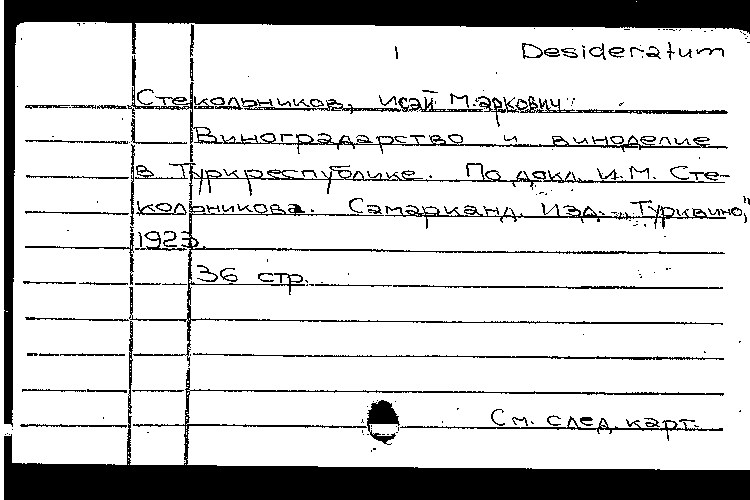 1 Desideratum
Стекольников, Исай Маркович.
Виноградарство и виноделие
в Туркреспублике. По докл. И.М. Сте-
кольникова. Самарканд. Изд. „Турквино,"
1923.
36 стр.
См. след. карт.